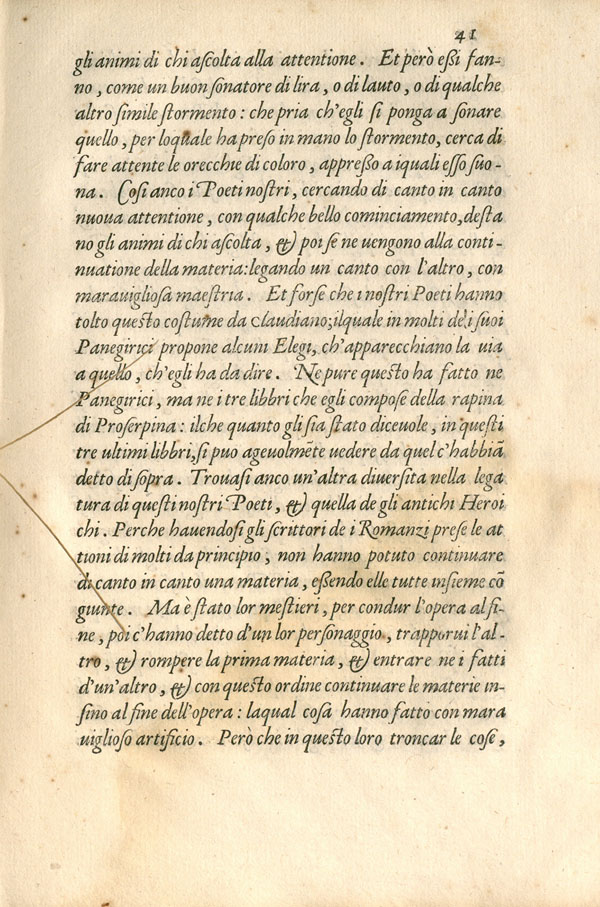 41
gli animi di chi aſcolta alla attentione. Et però eßi fan-
no, come un buon ſonatore di lira, o di lauto, o di qualche
altro ſimile ſtormento: che pria ch'egli ſi ponga a ſonare
quello, per loquale ha preſo in mano lo ſtormento, cerca di
fare attente le orecchie di coloro, appreßo a iquali eſſo ſuo-
na. Coſi anco i Poeti noſtri, cercando di canto in canto
nuoua attentione, con qualche bello cominciamento, deſta
no gli animi di chi aſcolta, & poi ſe ne uengono alla conti-
nuatione della materia: legando un canto con l'altro, con
marauiglioſa maeſtria. Et forſe che i noſtri Poeti hanno
tolto queſto coſtume da Claudiano; ilquale in molti de i ſuoi
Panegirici propone alcuni Elegi, ch'apparecchiano la uia
a quello, ch'egli ha da dire. Ne pure queſto ha fatto ne
Panegirici, ma ne i tre libbri che egli compoſe della rapina
di Proſerpina: ilche quanto gli ſia ſtato diceuole, in queſti
tre ultimi libbri, ſi puo ageuolmẽte uedere da quel c'habbiã
detto di ſopra. Trouaſi anco un'altra diuerſita nella lega
tura di queſti noſtri Poeti, & quella de gli antichi Heroi
chi. Perche hauendoſi gli ſcrittori de i Romanzi preſe le at
tioni di molti da principio, non hanno potuto continuare
di canto in canto una materia, eßendo elle tutte inſieme cõ
giunte. Ma è ſtato lor meſtieri, per condur l'opera al fi-
ne, poi c'hanno detto d'un lor perſonaggio, trapporui l'al-
tro, & rompere la prima materia, & entrare ne i fatti
d'un'altro, & con queſto ordine continuare le materie in-
ſino al fine dell'opera: laqual coſa hanno fatto con mara
uiglioſo artificio. Però che in queſto loro troncar le coſe,